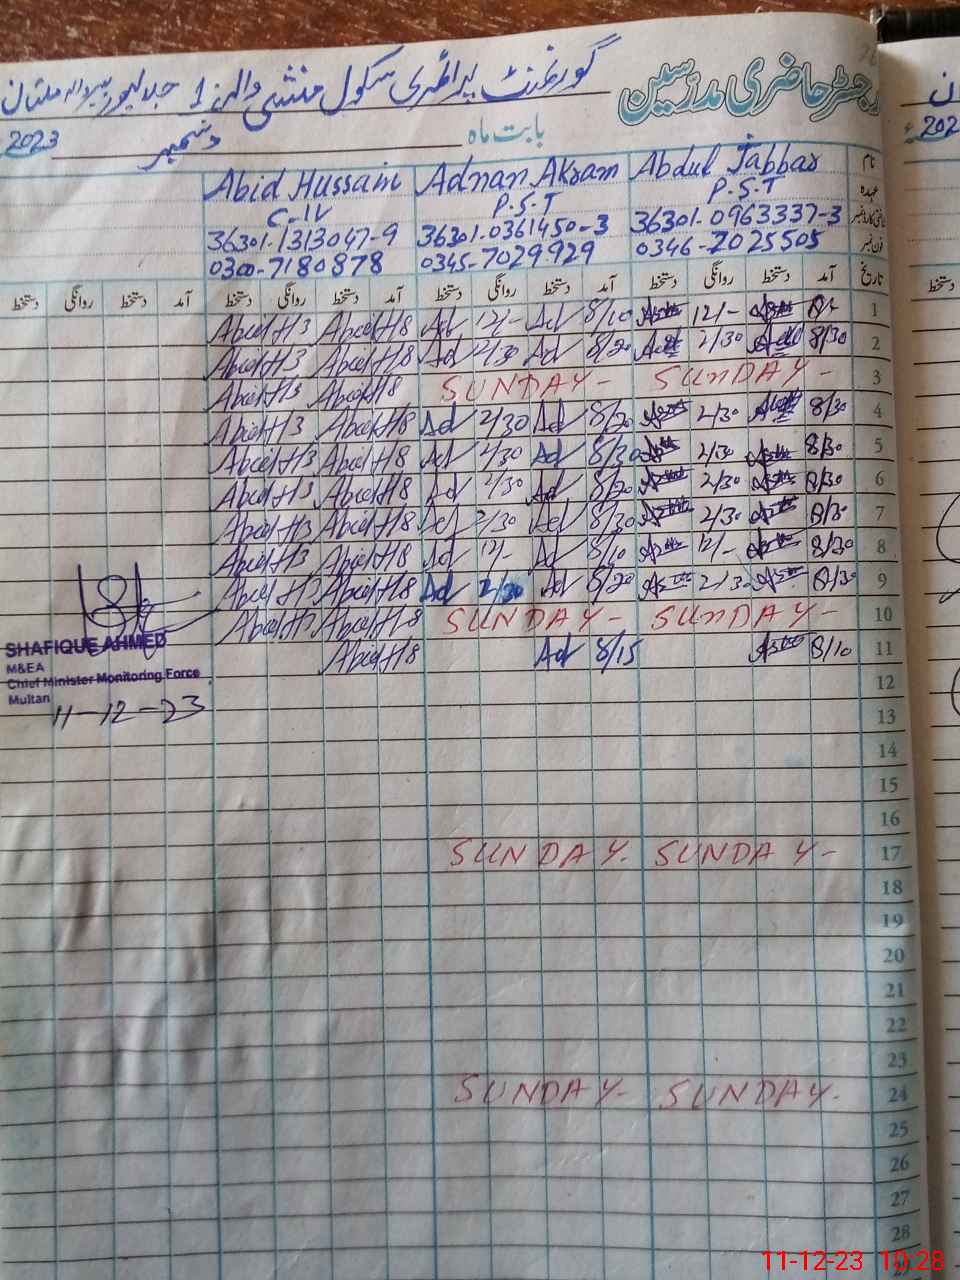 رجسٹر حاضری مدرسین
گورنمنٹ پرائمری سکول منشی والہ 1
بابت ماہ دسمبر 2023
نام Abdul Jabbar Adnan Akram Abid Hussain
عہدہ P.S.T P.S.T C-IV
36301.0963337-3 36301.0361450-3 36301.1313047-9
فون نمبر 0346-7025505 0345-7029929 0300-7180878
تاریخ آمد دستخط روانگی دستخط آمد دستخط روانگی دستخط آمد دستخط روانگی دستخط آمد دستخط روانگی دستخط
1 12/- 8/10 Ad 12/- Ad Abid H 8 Abid H 3
2 8/30 2/30 8/20 Ad 2/30 Ad Abid H 8 Abid H 3
3 SUNDAY - SUNDAY - Abid H 8 Abid H 3
4 8/30 2/30 8/20 Ad 2/30 Ad Abid H 8 Abid H 3
5 8/30 2/30 8/30 Ad 2/30 Ad Abid H 8 Abid H 3
6 8/30 2/30 8/20 Ad 2/30 Ad Abid H 8 Abid H 3
7 8/30 2/30 8/30 Ad 2/30 Ad Abid H 8 Abid H 3
8 8/20 12/- 8/10 Ad 12/- Ad Abid H 8 Abid H 3
9 8/30 2/30 8/20 Ad 2/30 Ad Abid H 8 Abid H
10 SUNDAY - SUNDAY - Abid H 8 Abid H
11 8/10 8/15 Ad Abid H 8
12
13
14
15
16
17 SUNDAY - SUNDAY -
18
19
20
21
22
23
24 SUNDAY - SUNDAY -
25
26
27
28
SHAFIQUE AHMED
M&EA
Chief Minister Monitoring Force
Multan
11-12-23
11-12-23 10:28